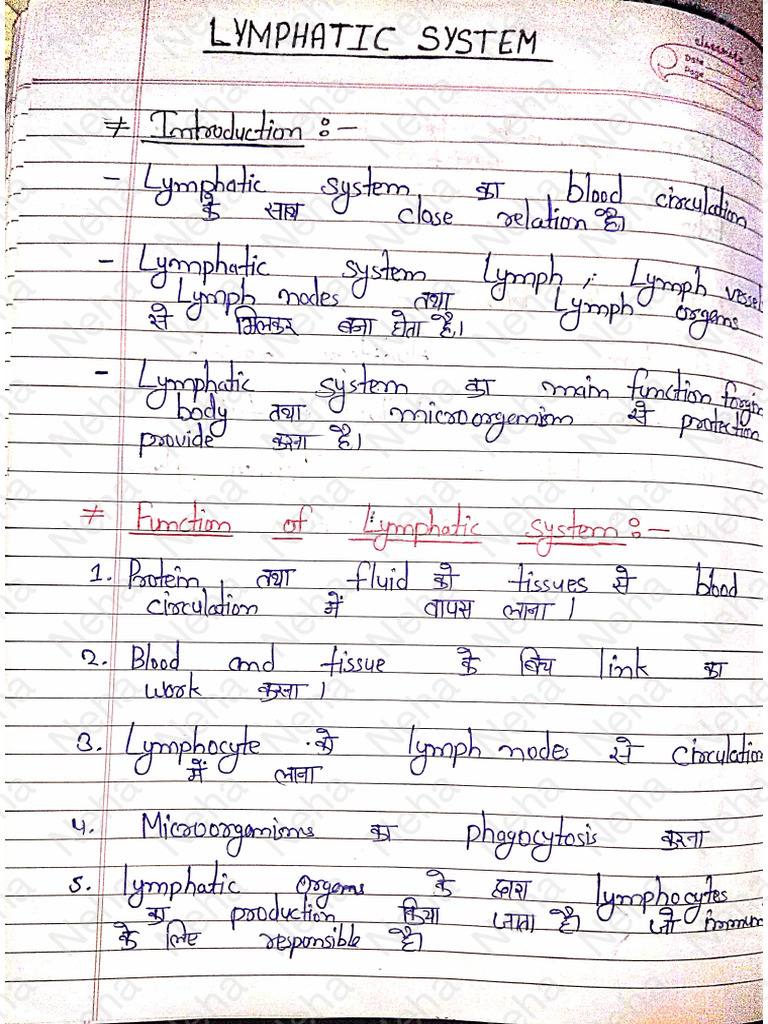 LYMPHATIC SYSTEM
classmate
Date
Page
≠ Introduction :-
- Lymphatic system का blood circulation
के साथ close relation है।
- Lymphatic system Lymph, Lymph vessel
Lymph nodes तथा Lymph orgems
से मिलकर बना होता है।
- Lymphatic system का main function forgin
body तथा microorgemism से protection
provide करना है।
≠ Function of Lymphatic system :-
1. Protein तथा fluid को tissues से blood
circulation में वापस लाना।
2. Blood and tissue के बिच link का
work करना।
3. Lymphocyte को lymph nodes से circulation
में लाना
4. Microorganisms का phagocytosis करना
5. lymphatic orgems के द्वारा lymphocytes
का production किया जाता है। जो immun
के लिए responsible है।
Neha